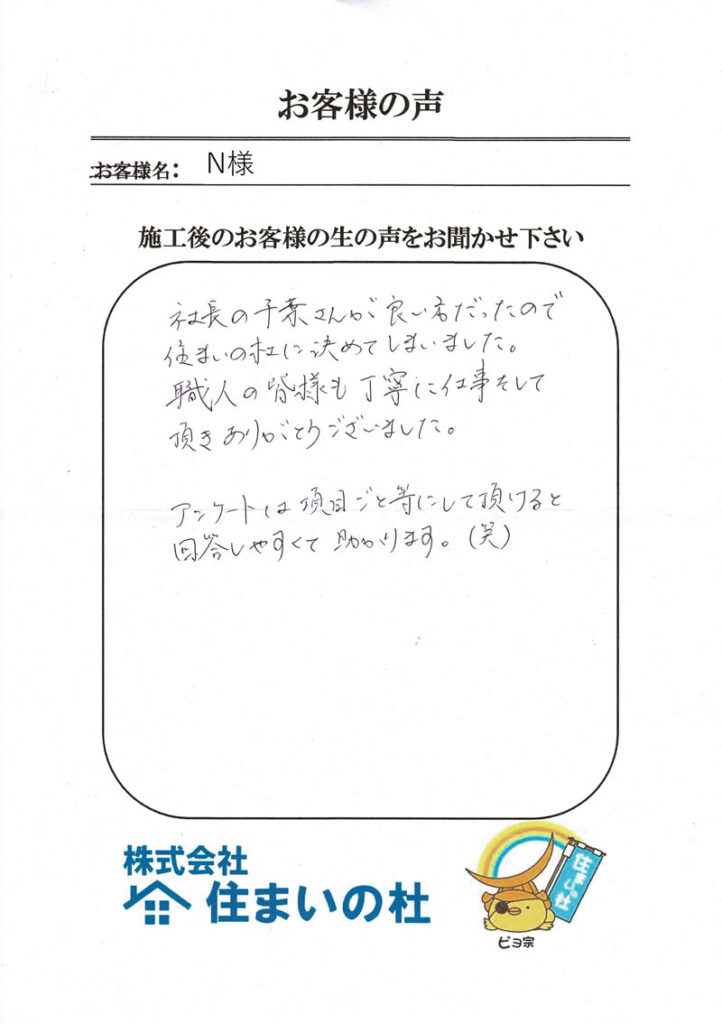 お客様の声
お客様名： N様
施工後のお客様の生の声をお聞かせ下さい
社長の千葉さんが良い方だったので
住まいの杜に決めてしまいました。
職人の皆様も丁寧に仕事をして
頂きありがとうございました。
アンケートは項目ごと等にして頂けると
回答しやすくて助かります。(笑)
株式会社
住まいの杜
住まいの杜
ピヨ宗